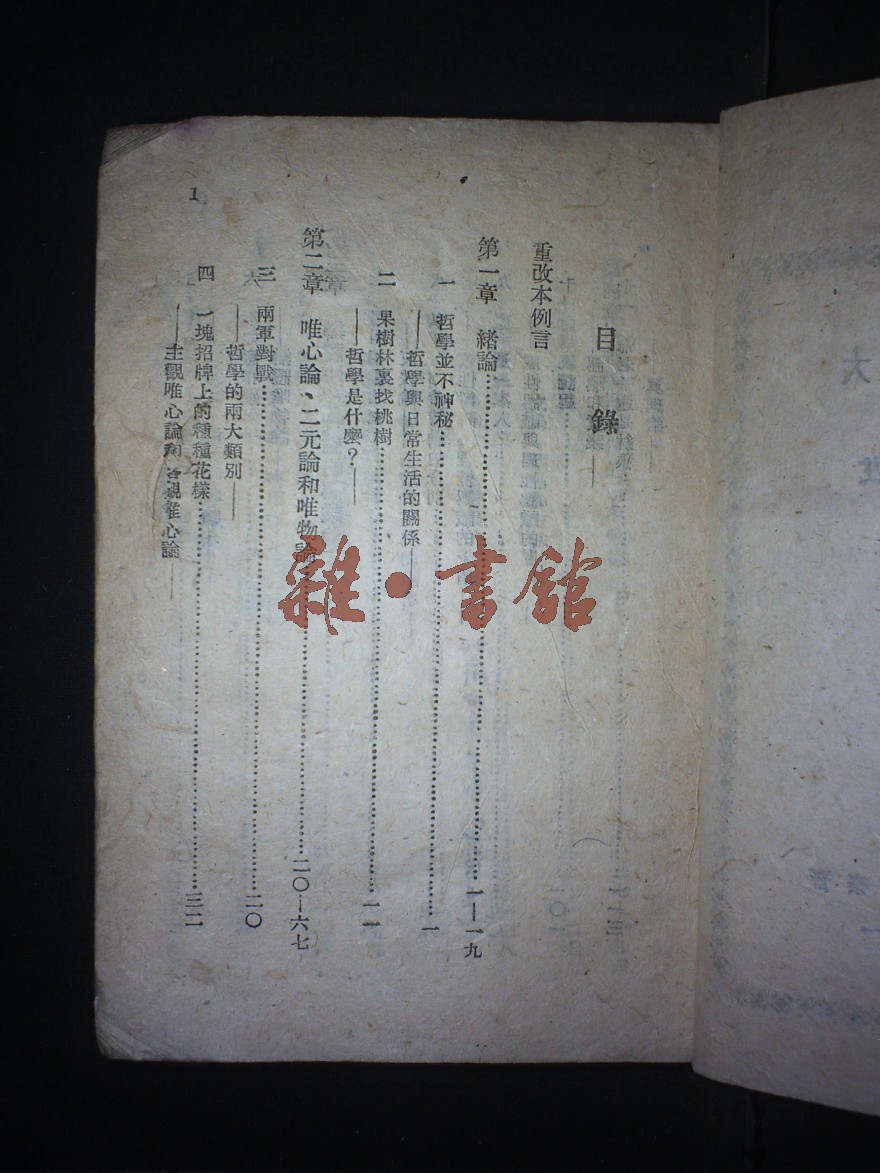 目錄
重改本例言
第一章 緒論……一—一九
一 哲學並不神秘……一
——哲學與日常生活的關係——
二 果樹林裏找桃樹……一一
——哲學是什麼？——
第二章 唯心論、二元論和唯物論……二〇—六七
三 兩軍對戰……二〇
——哲學的兩大類別——
四 一塊招牌上的種種花樣……三一
——主觀唯心論和客觀唯心論——
1
雜·書館
大